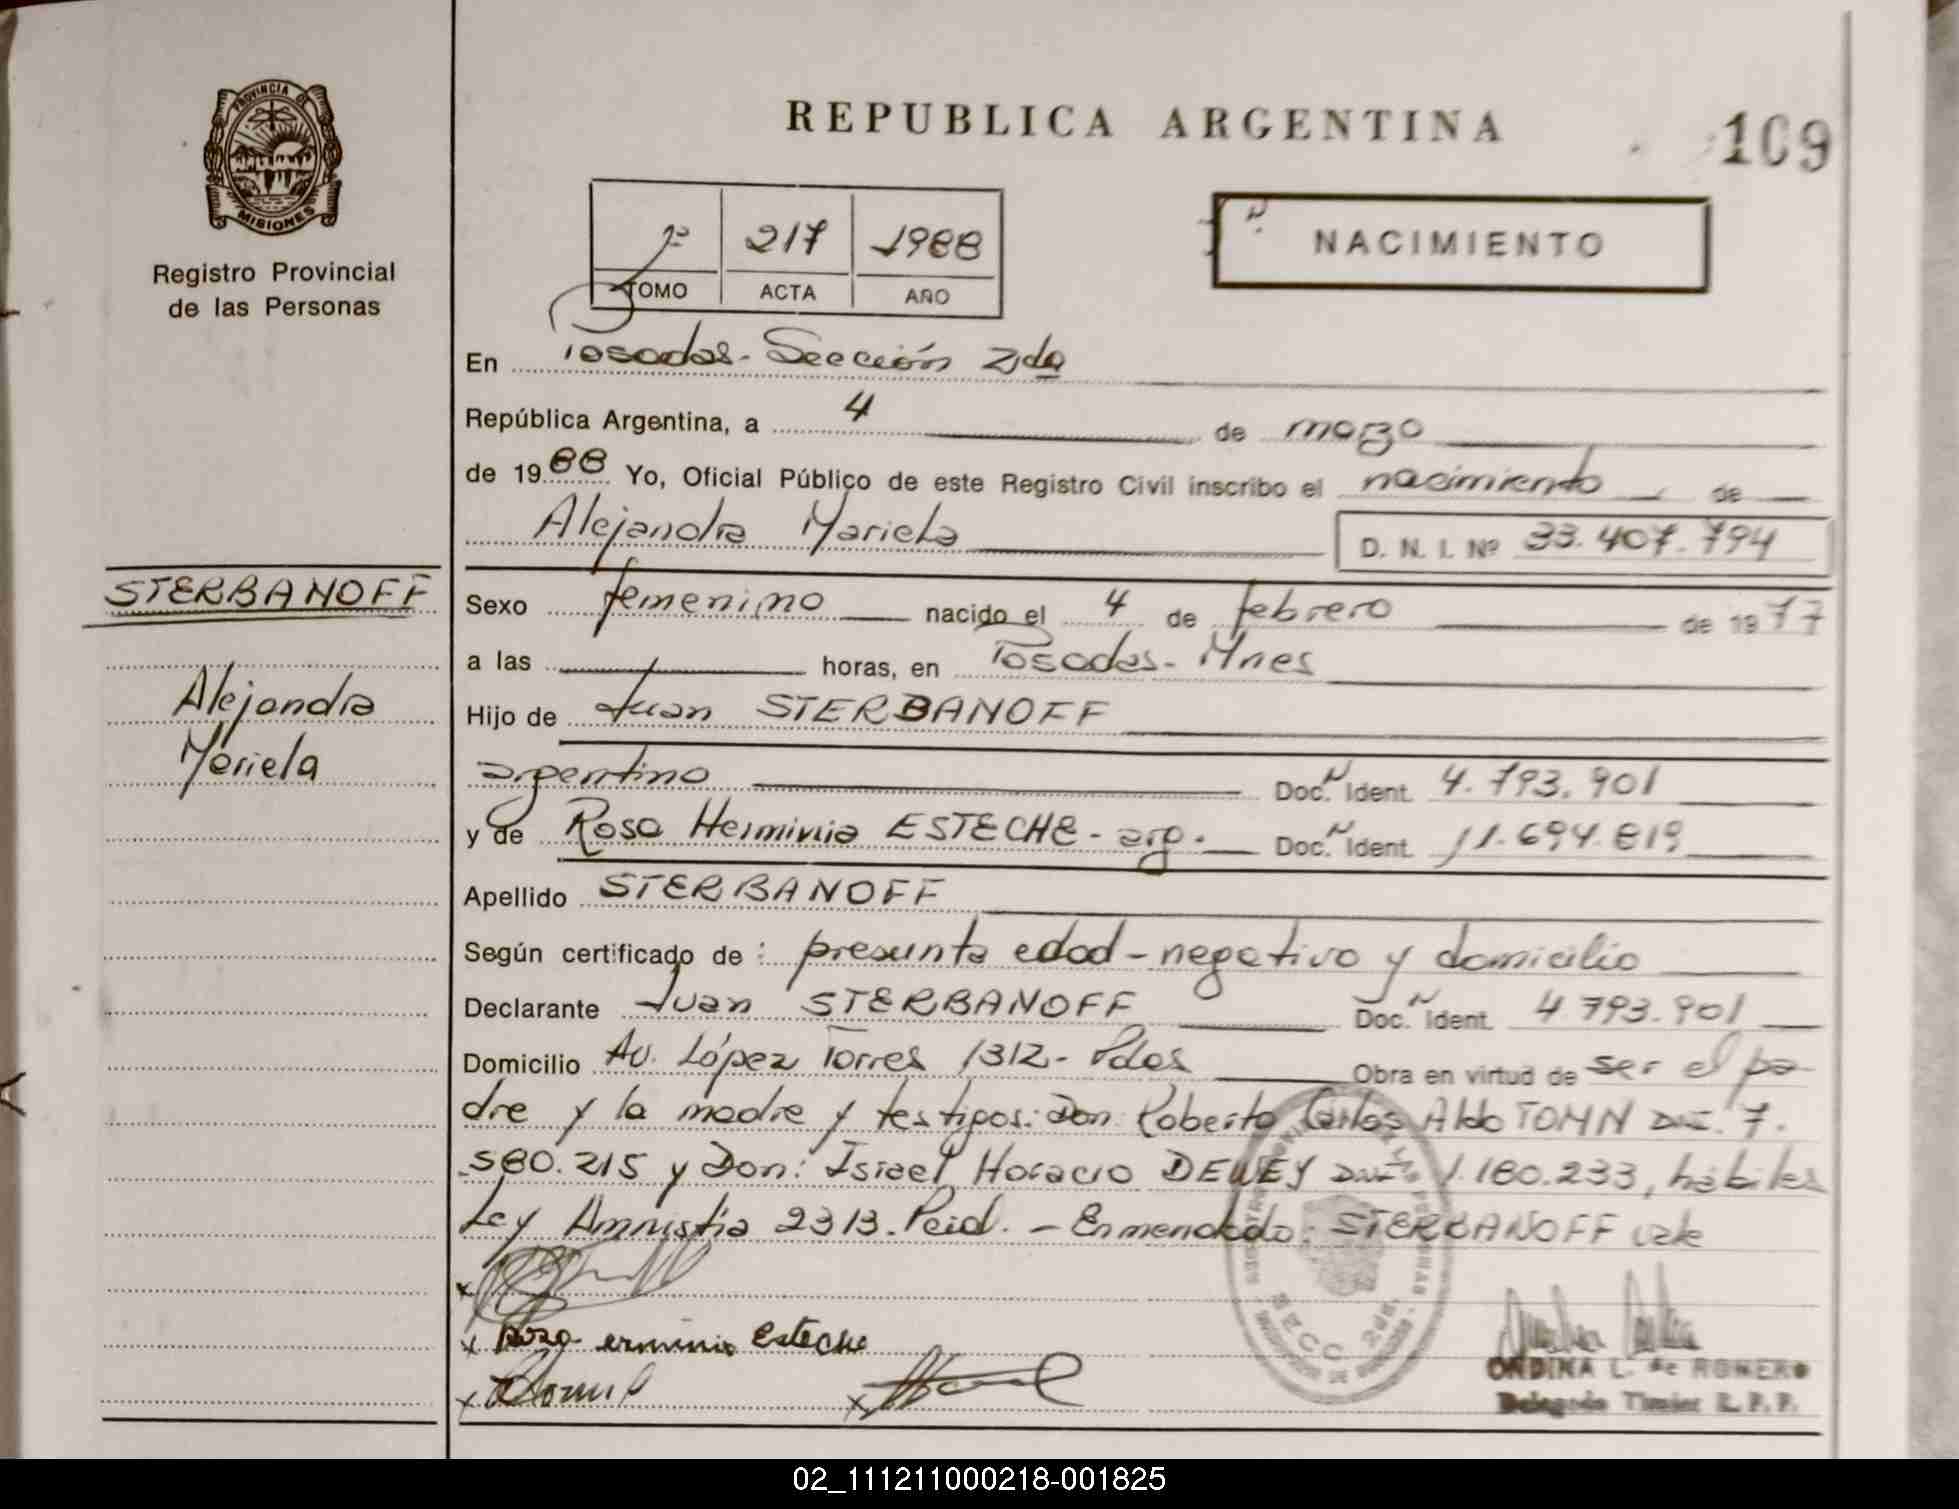 PROVINCIA DE
MISIONES
Registro Provincial
de las Personas
REPUBLICA ARGENTINA
109
1º 217 1988
TOMO ACTA AÑO
NACIMIENTO
En Posadas - Sección 2da
República Argentina, a 4 de marzo
de 1988 Yo, Oficial Público de este Registro Civil inscribo el nacimiento de
Alejandra Mariela D. N. I. Nº 33.407.794
STERBANOFF
Alejandra
Mariela
Sexo femenino nacido el 4 de febrero de 1977
a las horas, en Posadas - Mnes
Hijo de Juan STERBANOFF
argentino Doc. Ident. 4.793.901
y de Rosa Herminia ESTECHE - arg. Doc. Ident. 11.694.819
Apellido STERBANOFF
Según certificado de : presunta edad - negativo y domicilio
Declarante Juan STERBANOFF Doc. Ident. 4 793.901
Domicilio Av. López Torres 1312 - Pdas Obra en virtud de ser el pa-
dre y la madre y testigos: Don: Roberto Carlos Aldo TOMN DNI. 7.
580.215 y Don: Israel Horacio DEWEY DNI 1.180.233, hábiles
Ley Amnistía 2313. Peid. - Enmendado: STERBANOFF vale
x
x Rosa erminia Esteche
x x
SECC. 2da.
ONDINA L. de ROMERO
Delegada Titular R. P. P.
02_111211000218-001825